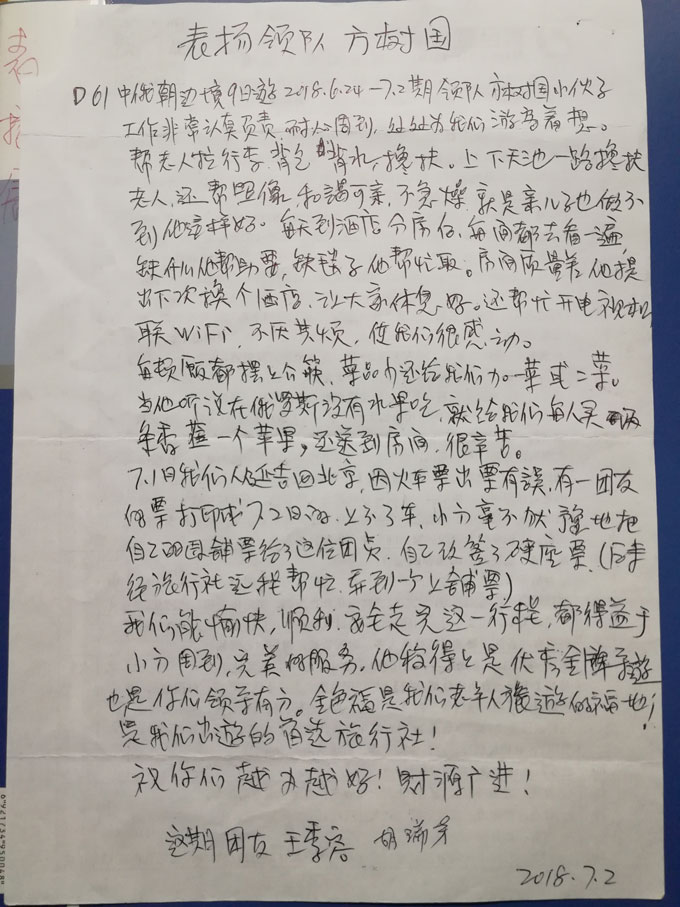 表扬信
表扬领队 方树国
D61中俄朝边境9日遊 2018.6.24—7.2期领队 方树国小伙子
工作非常认真负责 耐心周到, 处处为我们游客着想。
帮老人拉行李, 背包 背水, 搀扶。上下天池一路搀扶
老人, 还帮照像, 和谒可亲, 不急燥, 就是亲儿子也做不
到他这样好。每天到酒店分房后, 每间都去看一遍,
缺什么他帮助要, 缺毯子他帮忙取。房间质量差他提
出下次换个酒店, 让大家休息好。还帮忙开电视机
联WiFi, 不厌其烦, 使我们很感动。
每顿饭都摆上公筷, 菜品少还给我们加一菜或二菜。
当他听说在俄罗斯没有水果吃, 就给我们每人买
香蕉一个苹果, 还送到房间, 很辛苦。
7.1日我们从延吉回北京, 因火车票出票有誤, 有一团友
的票打印成7.2日的, 上不了车, 小方毫不犹豫地把
自己的卧铺票给了这位团员, 自己改签了硬座票, (后来
经旅行社还我帮忙, 弄到一个上铺票)
我们能愉快, 顺利, 安全走完这一行程, 都得益于
小方周到, 完美的服务, 他称得上是优秀金牌导遊
也是你们领导有方。金色福是我们老年人旅遊的福地!
是我们出遊的首选旅行社!
祝你们越办越好! 财源广进!
这期团友 王季容 胡瑞芳
2018.7.2